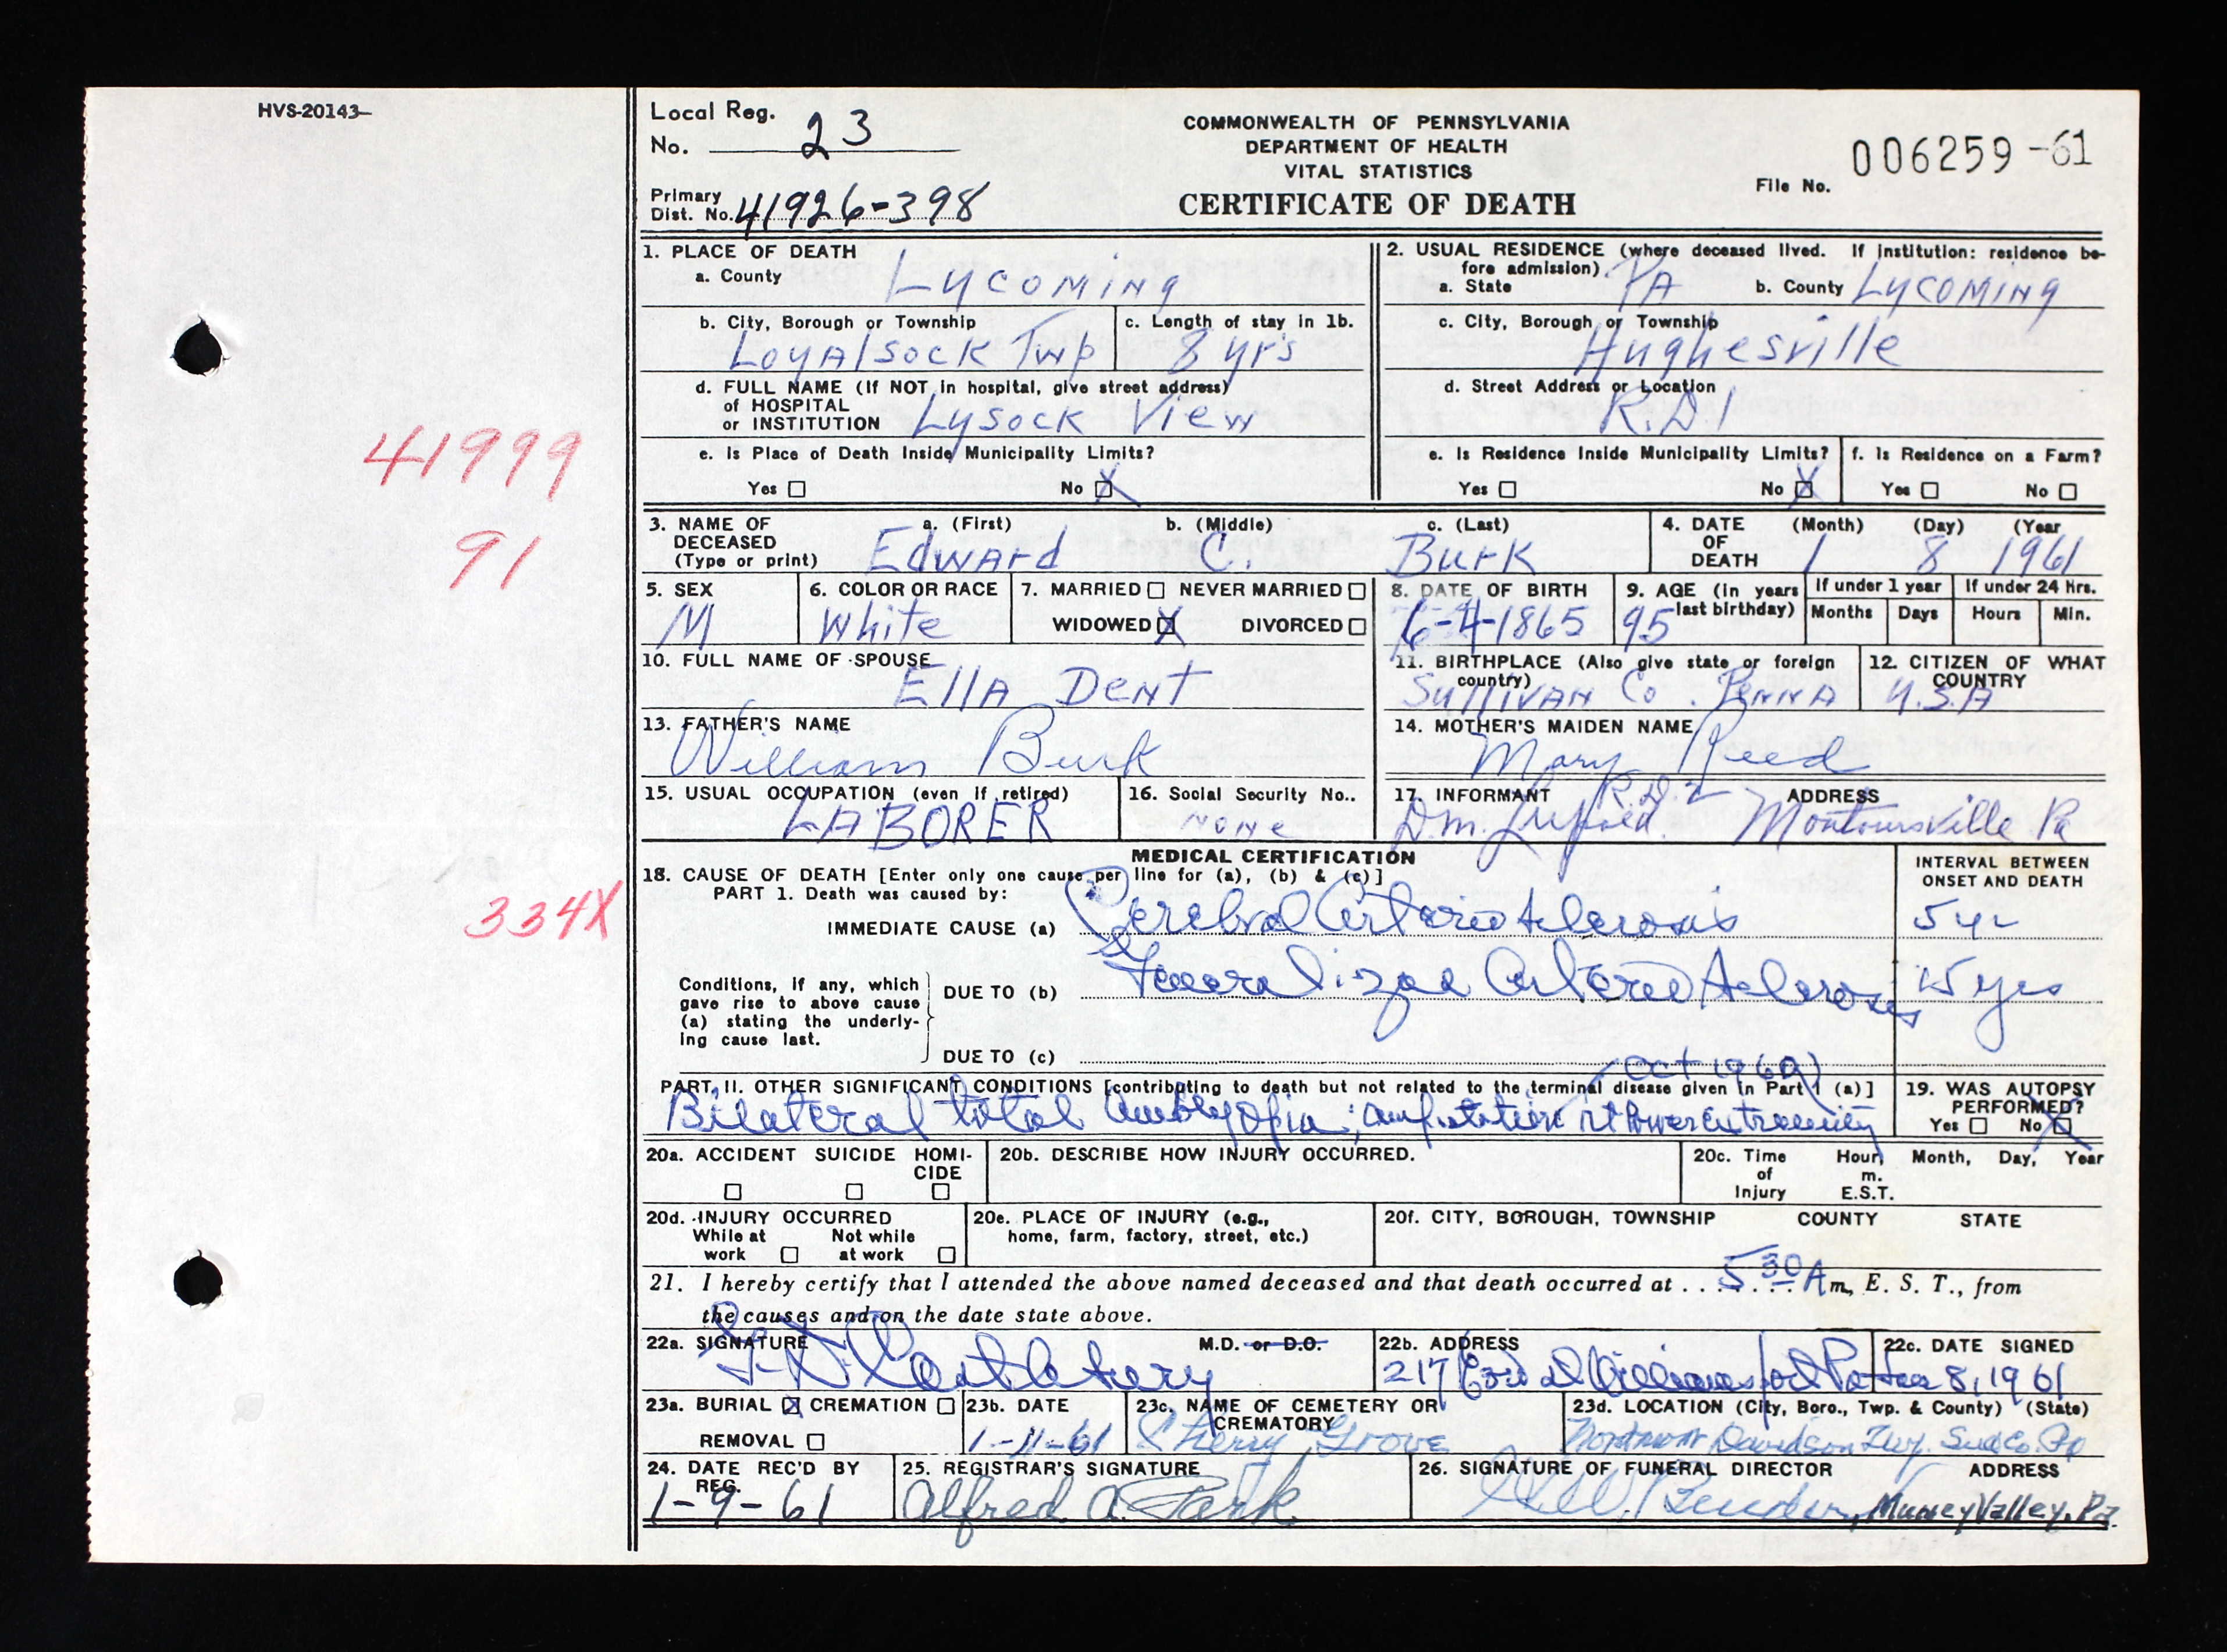 HVS-20143-
Local Reg.
No. 23
COMMONWEALTH OF PENNSYLVANIA
DEPARTMENT OF HEALTH
VITAL STATISTICS
CERTIFICATE OF DEATH
File No. 006259-61
Primary
Dist. No. 41926-398
41999
91
334X
1. PLACE OF DEATH
a. County Lycoming
b. City, Borough or Township Loyalsock Twp
c. Length of stay in 1b. 8 yrs
d. FULL NAME (If NOT in hospital, give street address)
of HOSPITAL
or INSTITUTION Lysock View
e. Is Place of Death Inside Municipality Limits?
Yes No X
2. USUAL RESIDENCE (where deceased lived. If institution: residence be-
fore admission).
a. State PA b. County Lycoming
c. City, Borough or Township Hughesville
d. Street Address or Location R.D 1
e. Is Residence Inside Municipality Limits?
Yes No X
f. Is Residence on a Farm?
Yes No
3. NAME OF
DECEASED
(Type or print)
a. (First) b. (Middle) c. (Last)
Edward C. Burk
4. DATE
OF
DEATH
(Month) (Day) (Year
1 8 1961
5. SEX M
6. COLOR OR RACE White
7. MARRIED NEVER MARRIED
WIDOWED X DIVORCED
8. DATE OF BIRTH 6-4-1865
9. AGE (In years
last birthday) 95
If under 1 year
Months Days
If under 24 Hrs.
Hours Min.
10. FULL NAME OF SPOUSE
Ella Dent
11. BIRTHPLACE (Also give state or foreign
country)
Sullivan Co. Penna
12. CITIZEN OF WHAT
COUNTRY
U.S.A
13. FATHER'S NAME
William Burk
14. MOTHER'S MAIDEN NAME
Mary Reed
15. USUAL OCCUPATION (even if retired)
LABORER
16. Social Security No..
None
17. INFORMANT ADDRESS
R.D. 2
D.M. Montoursville Pa
MEDICAL CERTIFICATION
18. CAUSE OF DEATH [Enter only one cause per line for (a), (b) & (c)]
PART 1. Death was caused by:
INTERVAL BETWEEN
ONSET AND DEATH
IMMEDIATE CAUSE (a) Cerebral Arteriosclerosis 5 yr
Conditions, if any, which
gave rise to above cause
(a) stating the underly-
ing cause last.
DUE TO (b) Generalized Arteriosclerosis 15 yrs
DUE TO (c)
(Oct 1960)
PART II. OTHER SIGNIFICANT CONDITIONS [contributing to death but not related to the terminal disease given in Part 1 (a)]
Bilateral total Amblyopia; amputation rt lower extremity
19. WAS AUTOPSY
PERFORMED?
Yes No X
20a. ACCIDENT SUICIDE HOMI-
CIDE
20b. DESCRIBE HOW INJURY OCCURRED.
20c. Time
of
Injury
Hour, Month, Day, Year
m.
E.S.T.
20d. INJURY OCCURRED
While at
work
Not while
at work
20e. PLACE OF INJURY (e.g.,
home, farm, factory, street, etc.)
20f. CITY, BOROUGH, TOWNSHIP COUNTY STATE
21. I hereby certify that I attended the above named deceased and that death occurred at ... 5 30 A m., E. S. T., from
the causes and on the date state above.
22a. SIGNATURE M.D. or D.O.
22b. ADDRESS
217 Williamsport Pa
22c. DATE SIGNED
Jan 8, 1961
23a. BURIAL X CREMATION
REMOVAL
23b. DATE
1-11-61
23c. NAME OF CEMETERY OR
CREMATORY
Cherry Grove
23d. LOCATION (City, Boro., Twp. & County) (State)
Davidson Twp. Pa
24. DATE REC'D BY
REG.
1-9-61
25. REGISTRAR'S SIGNATURE
Alfred A. Park
26. SIGNATURE OF FUNERAL DIRECTOR ADDRESS
Muncy Valley, Pa.